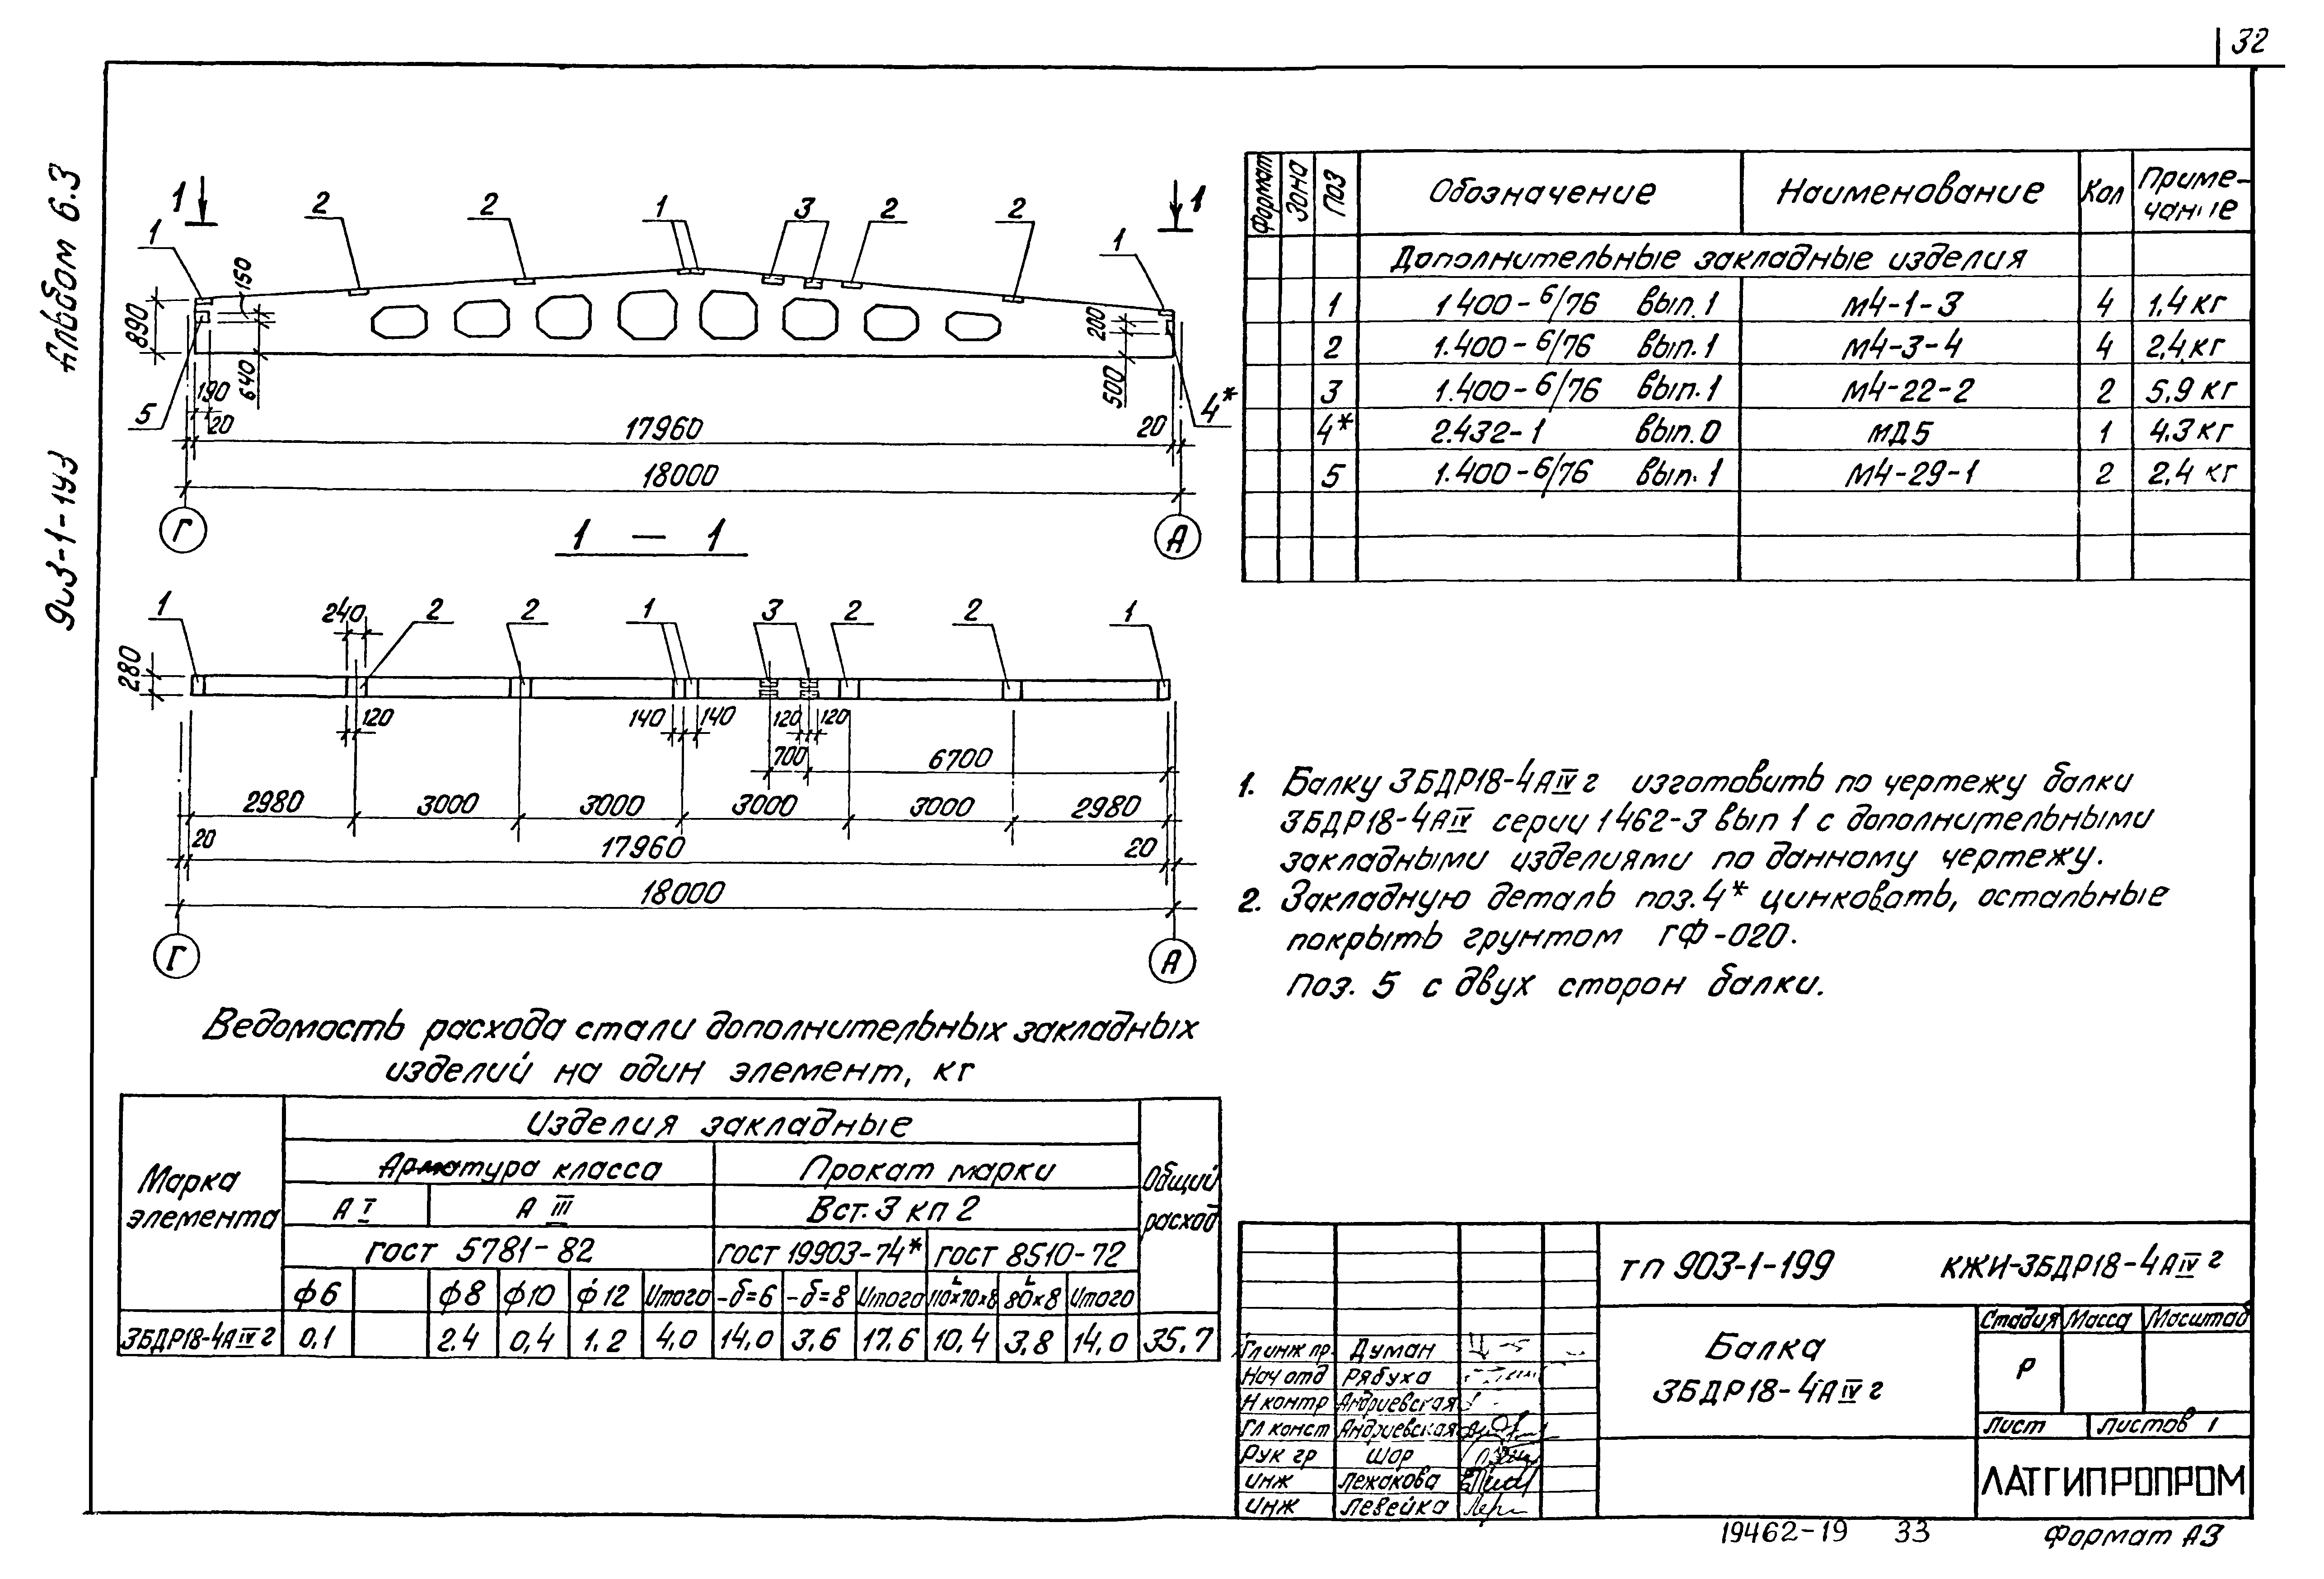 32
Альбом 6.3
903-1-193
1 1
1 2 2 1 3 2 2 1
890
150
640
190
20
5
200
500
4*
17960
20
18000
Г А
1 — 1
1 240 2 2 1 3 2 2 1
280
120 140 140 120 120
700 6700
2980 3000 3000 3000 3000 2980
20 17960 20
18000
Г А
Формат Зона Поз Обозначение Наименование Кол Приме-
чание
Дополнительные закладные изделия
1 1.400-6/76 вып.1 М4-1-3 4 1,4 кг
2 1.400-6/76 вып.1 М4-3-4 4 2,4 кг
3 1.400-6/76 вып.1 М4-22-2 2 5,9 кг
4* 2.432-1 вып.0 МД5 1 4.3 кг
5 1.400-6/76 вып.1 М4-29-1 2 2,4 кг
1. Балку 3БДР18-4АIVг изготовить по чертежу балки
3БДР18-4АIV серии 1462-3 вып 1 с дополнительными
закладными изделиями по данному чертежу.
2. Закладную деталь поз.4* цинковать, остальные
покрыть грунтом ГФ-020.
Поз. 5 с двух сторон балки.
Ведомость расхода стали дополнительных закладных
изделий на один элемент, кг
Марка
элемента
Изделия закладные
Общий
расход
Арматура класса Прокат марки
А I А III Вст.3 кп 2
ГОСТ 5781-82 ГОСТ 19903-74* ГОСТ 8510-72
ф6 ф8 ф10 ф12 Итого -δ=6 -δ=8 Итого L110×70×8 L80×8 Итого
3БДР18-4АIVг 0,1 2.4 0,4 1.2 4,0 14,0 3,6 17.6 10,4 3,8 14,0 35,7
ТП 903-1-199 КЖИ-3БДР18-4АIVг
Балка
3БДР18-4АIVг
Стадия Масса Масштаб
Р
Лист Листов 1
ЛАТГИПРОПРОМ
Гл инж пр. Думан
Нач отд Рябуха
Н контр Андриевская
Гл конст Андриевская
Рук гр Шор
Инж Лежакова
Инж Левейка
19462-19 33 Формат А3